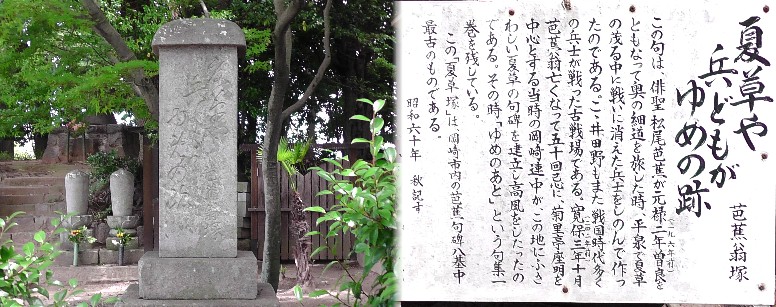 夏草や
兵どもが
ゆめの跡
芭蕉翁塚
この句は、俳聖松尾芭蕉が元禄二年曽良を
ともなって奥の細道を旅した時、平泉で夏草
の茂る中に戦いに消えた兵士をしのんで作っ
たのである。こゝ井田野もまた戦国時代多く
の兵士が戦った古戦場である。寛保三年十月
芭蕉翁亡くなって五十回忌に、菊里亭座明を
中心とする当時の岡崎連中が、この地にふさ
わしい夏草の句碑を建立し高風をしたったの
である。その時「ゆめのあと」という句集一
巻を残している。
この「夏草塚」は岡崎市内の芭蕉句碑八基中
最古のものである。
昭和六十年 秋記す